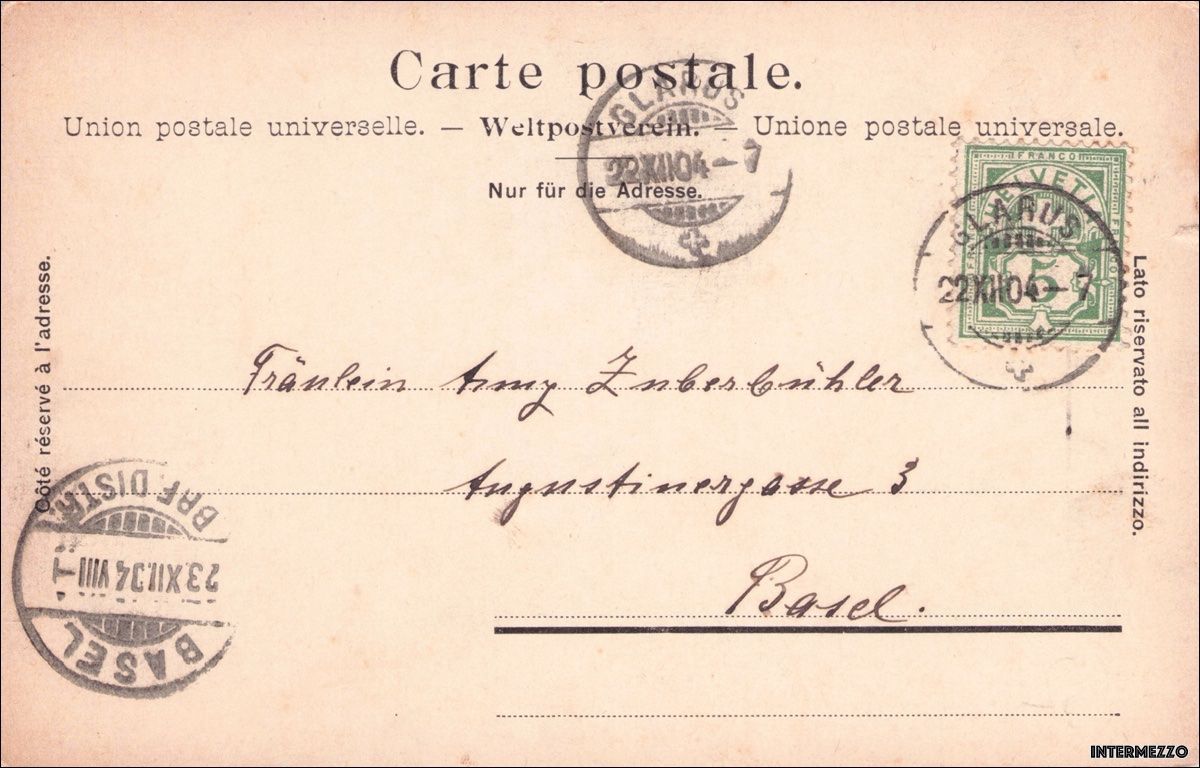 Carte postale.
Union postale universelle. — Weltpostverein. — Unione postale universale.
Nur für die Adresse.
GLARUS
22 XII 04 – 7
FRANCO
HELVETIA
5
GLARUS
22 XII 04 – 7
Côté réservé à l'adresse.
Lato riservato all indirizzo.
Fräulein Amy Zuberbühler
Augustinergasse 3
Basel.
BASEL
23.XII.04 VIII
BRF. DISTR.
INTERMEZZO